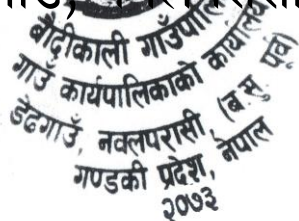 बौदीकाली गाउँपालि
गाउँ कार्यपालिकाको कार्यालय
डेढगाउँ, नवलपरासी (ब.सु. पूर्व)
गण्डकी प्रदेश, नेपाल
२०७३